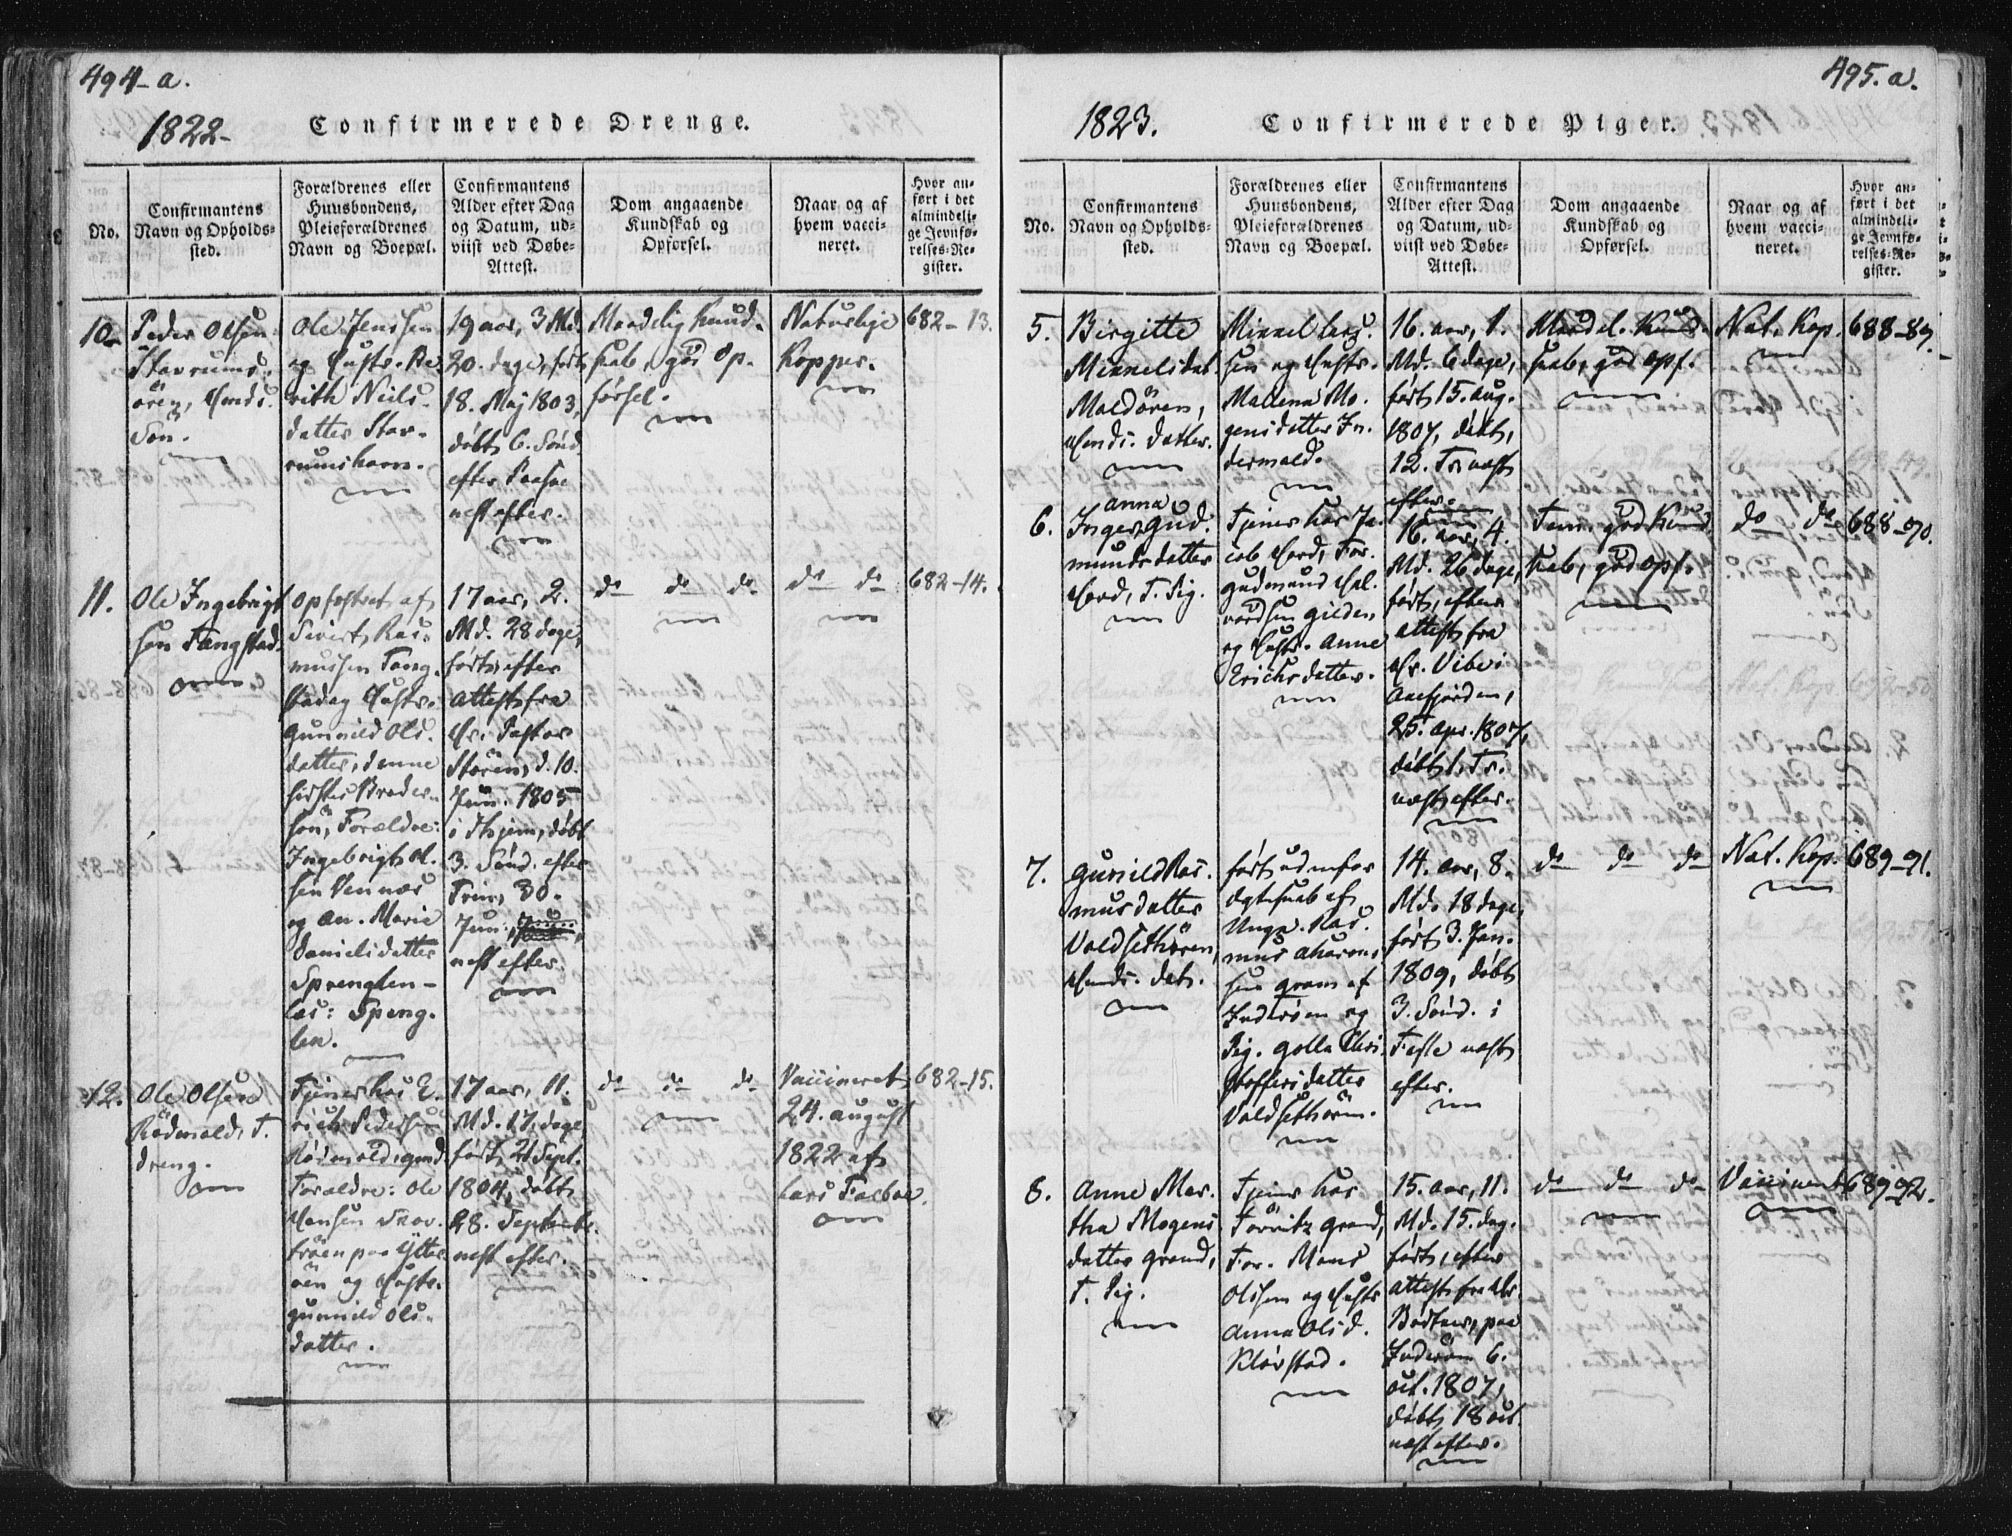 494-a.
1822-
Confirmerede Drenge.
No.
Confirmantens
Navn og Opholds-
sted.
Forældrenes eller
Huusbondens,
Pleieforældrenes
Navn og Boepæl.
Confirmantens
Alder efter Dag
og Datum, ud-
viist ved Døbe-
Attest.
Dom angaaende
Kundskab og
Opførsel.
Naar og af
hvem vacci-
neret.
Hvor an-
ført i det
almindeli-
ge Jevnfø-
relses-Re-
gister.
10.
Peder Olsen
Ole Jensen
og Hustr. Be-
rith Niels-
datter
19 aar, 3 Md.
20. dage, født
18. Maj 1803,
døbt 6. Sønd.
efter Paaske
næst efter.
Maadelig Kund-
skab, god Op-
førsel.
Naturlige
Kopper.
682-13.
11.
Ole Ingebrigt-
sen Tangstad.
opfostret af
Sivert Ras-
mussen Tang-
stad og Hustr.
Gunnild Ols-
datter, denne
Broder-
søn, Forældre:
Ingebrigt Ol-
sen
og An. Marie
Danielsdatter
17 aar, 2.
Md. 28 dage,
født, efter
Attest fra
Hr. Pastor
d. 10.
Jun. 1805
døbt
3. Sønd. efter
Trin, 30.
Jun.,
næst efter.
do do do
do do
682-14.
12.
Ole Olsen
Rødwald, T.
dreng.
Tjener hos E-
rich Pedersen
Forældre: Ole
Hansen
paa Ytter-
øen og Hustr.
Gunnild Ols-
datter.
17 aar, 11.
Md. 17. dage
født, 21 Sept.
1804, døbt
28. Septembr.
næst efter.
do do do
Vaccineret
24. August
1822 af
Lars Faeboe.
682-15.
495.a.
1823.
Confirmerede Piger.
No.
Confirmantens
Navn og Opholds-
sted.
Forældrenes eller
Huusbondens,
Pleieforældrenes
Navn og Boepæl.
Confirmantens
Alder efter Dag
og Datum, ud-
viist ved Døbe-
Attest.
Dom angaaende
Kundskab og
Opførsel.
Naar og af
hvem vacci-
neret.
Hvor an-
ført i det
almindeli-
ge Jevnfø-
relses-Re-
gister.
5.
Birgitte
Mikkelsdat.
datter.
Mikkel
sen og Hustr.
Malena Mo-
gensdatter In-
dermald.
16. aar, 1.
Md. 6 dage,
født 15. Aug.
1807, døbt,
12. Tr næst
efter.
Maadel. Kund-
skab, god Opf.
Nat. Kop.
688-89.
6.
Anna
Inger Gud-
mundsdatter
T. Pig.
Tjener hos Ja-
cob For.
Gudmund Hal-
vordsen Gilden
og Hustr. Anne
Erichsdatter.
16. aar, 4.
Md. 26 dage,
født, efter
attest fra
Hr. Vibe i
Aafjorden,
25. Apr. 1807,
døbt 1. Tr.
næst efter.
Tem. god Kund-
skab, god Opf.
do do
688-90.
7.
Gunild Ras-
musdatter
Valdsethøren,
datr.
født udenfor
Ægteskab af
Ungk. Ras-
mus Aharons-
sen Gram af
Inderøen og
Pig. Golla Chri-
stoffersdatter
Valdsethøren.
14. aar, 8.
Md. 18 dage,
født 3. Jan.
1809, døbt
3. Sønd. i
Faste næst
efter.
do do do
Nat. Kop.
689-91.
8.
Anne Mar-
tha Mogens
datter Grand,
T. Pig.
Tjener hos
Grand,
For. Mons
Olsen og Hustr
Anna Olsd.
Kløvstad.
15. aar, 11.
Md. 15. dag.
født, efter
attest fra Hr
paa
Inderøen 6.
Oct. 1807,
døbt, 18 Oct.
næst efter.
do do do
Vaccineret
689-92.